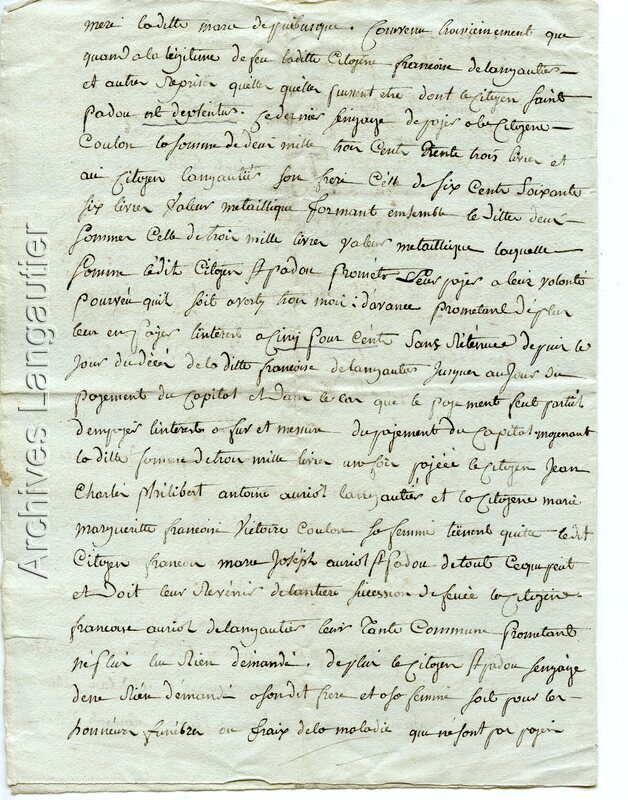 mere laditte marie de puibusque. Convenu troisiemement que
quand a la légitime de feu laditte Citoyene francoise delangautier
et autres reprises quelles quelles puissent etre dont le Citoyen Saint
padou est detenteur. Ce dernier sengage de payer a la Citoyene
Coulon la somme de deux mille trois Cents trente trois livres et
au Citoyen langautier son frere Celle de six Cents Soixante
six livres Valeur metallique formant ensemble les dittes deux
Sommes Celle de trois mille livres valeur metallique laquelle
Somme ledit Citoyen St padou promet Leur payer a leur volonté
pourveu quil soit averty trois mois d'avance prometant de plus
leur en payer linteret a Cinq pour Cents Sans Retenue depuis le
Jour du décés de la ditte francoise delangautier Jusques au Jour du
payement du Capital et dans le cas que le payement feut partiel
den payer linteret a fur et mesure du payement du Capital moyenant
la ditte somme de trois mille livres une fois payéé le Citoyen Jean
Charles philibert antoine auriol langautier et la Citoyene marie
margueritte francoise Victoire Coulon sa femme tienent quitte ledit
Citoyen francois marie Joséph auriol St padou de tout Ce qui peut
et Doit leur Revenir de lantiere sucession de feuée la Citoyene
francoise auriol delangautier leur Tante Commune prometant
ne plus lui Rien demandé. de plus le Citoyen St padou sengage
de ne Rien demandé a son dit frere et a sa femme soit pour les
honneurs funébres ou fraix de la maladie qui ne sont pas payés
Archives Langautier